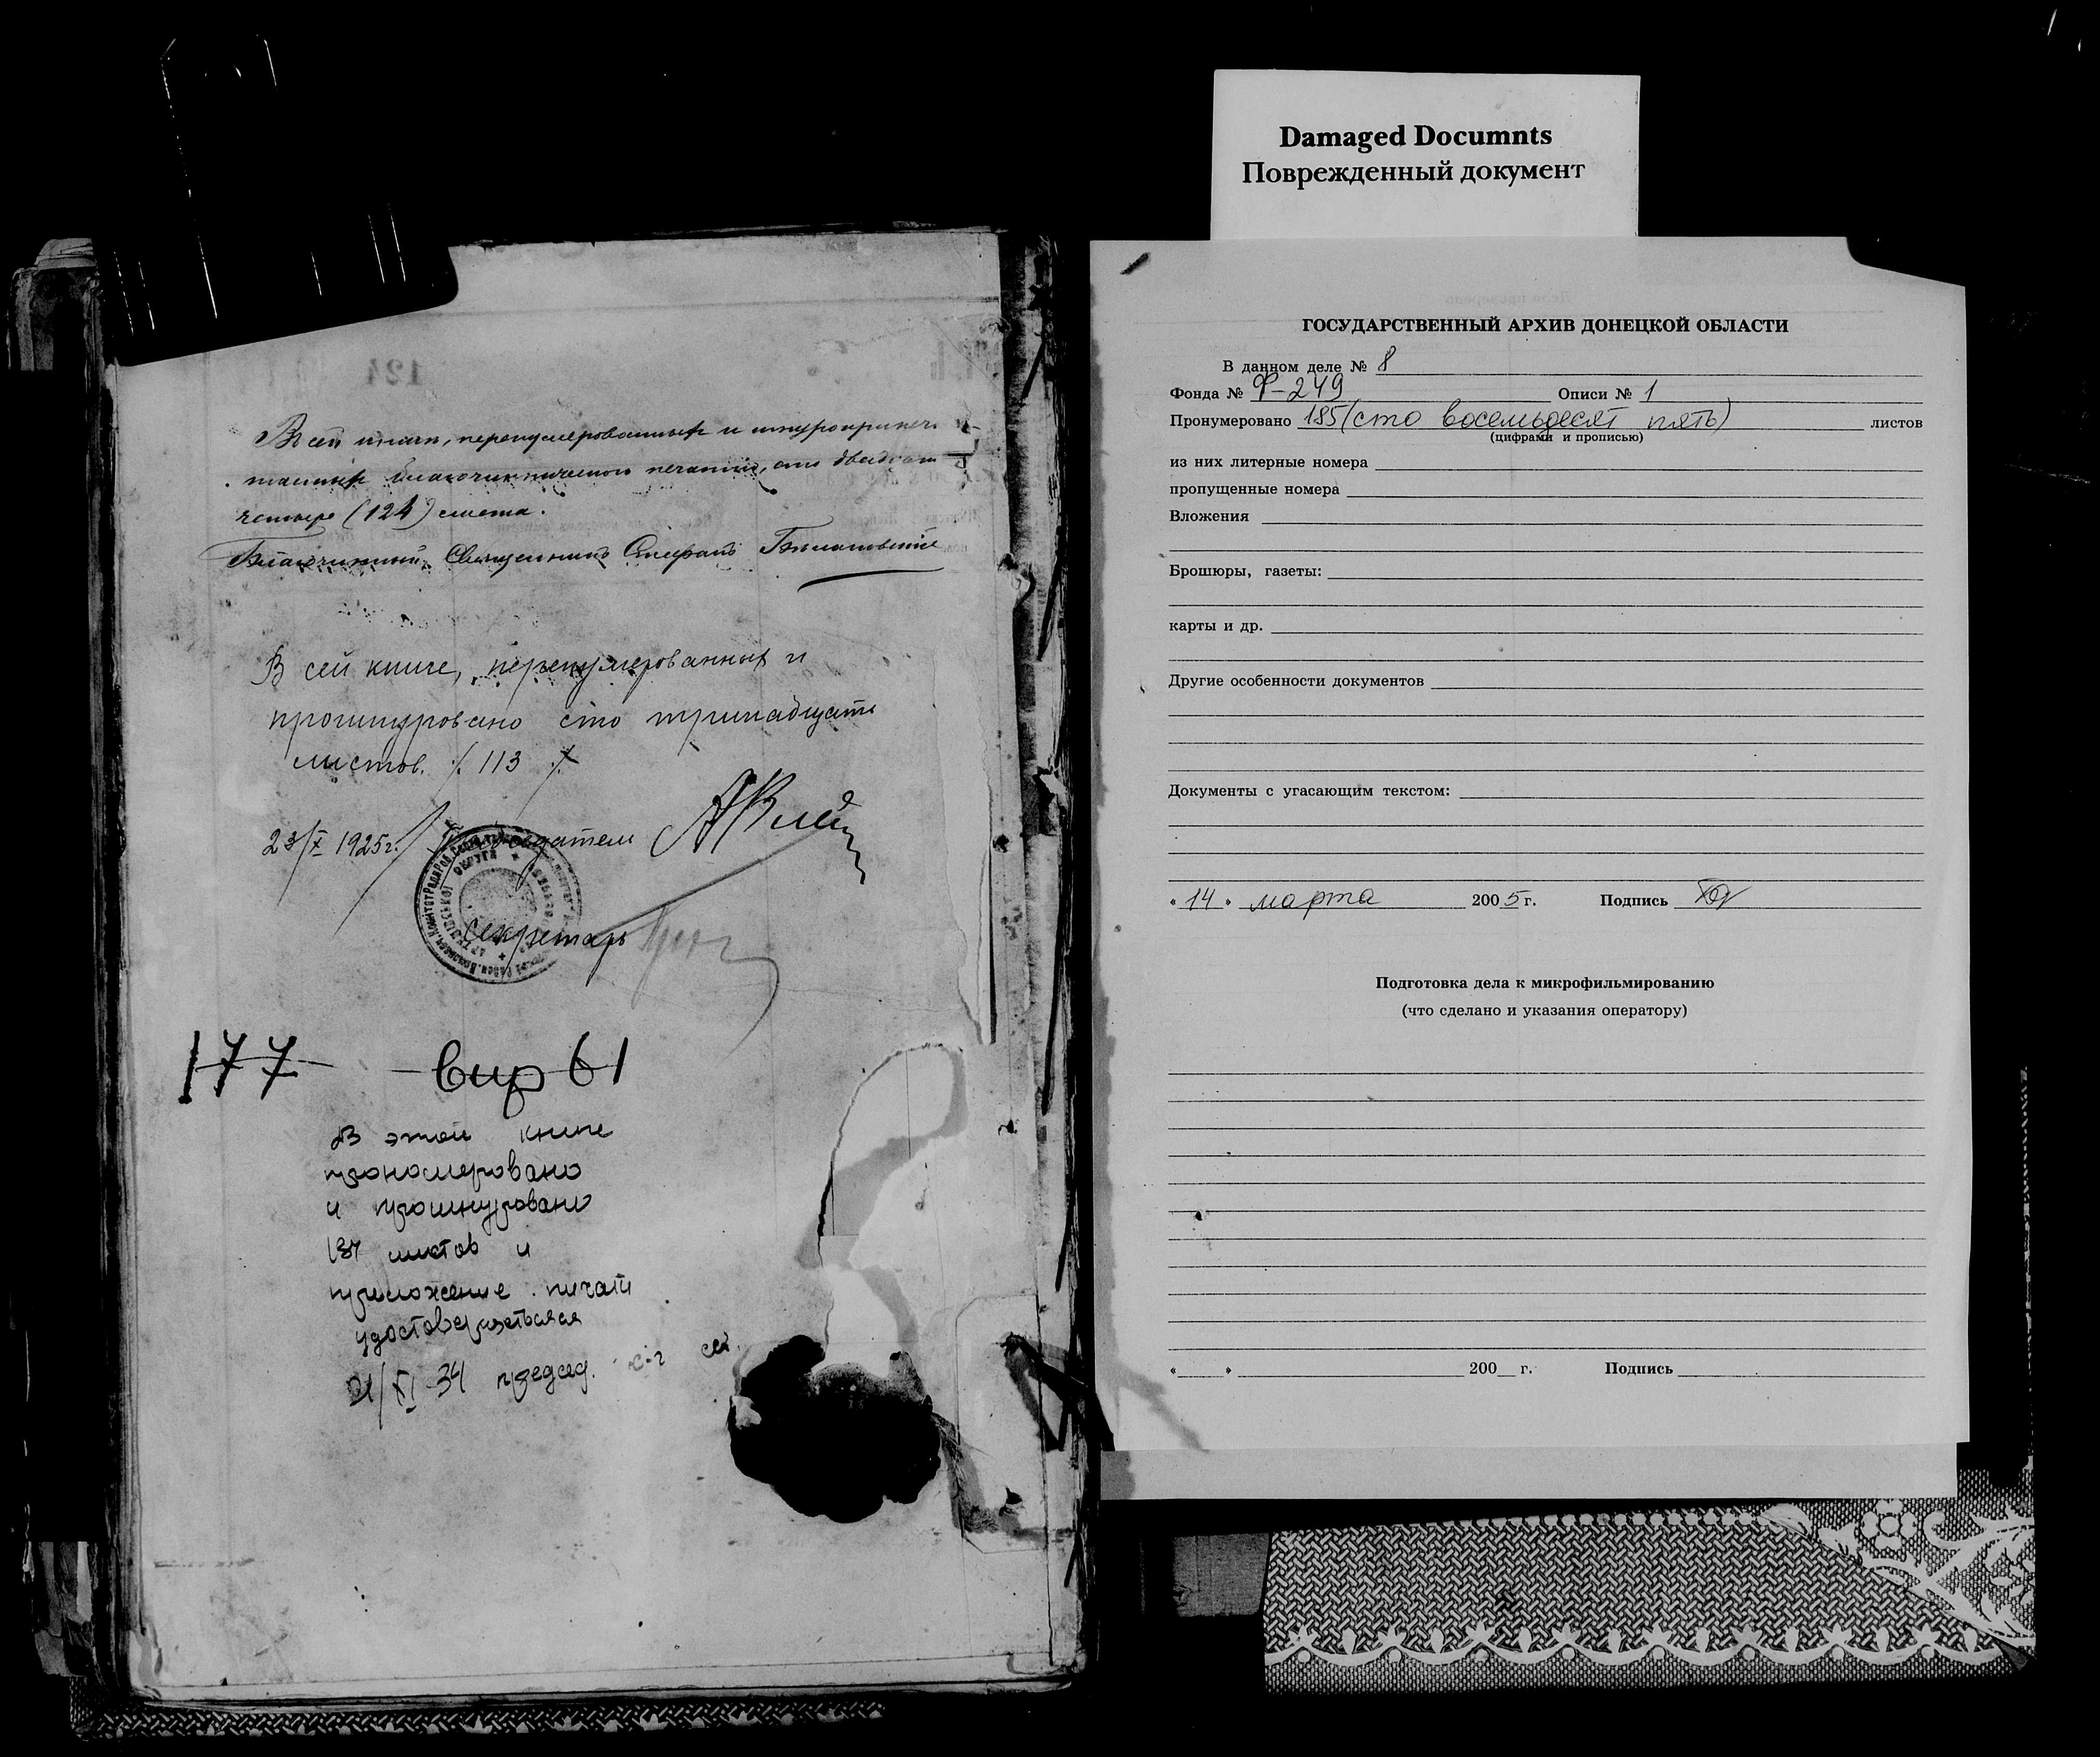 124
В сей книги, перенумерованныхъ и
печатью, сто двадцать
четыре (124) листа.
Благочинный, Священникъ Стефанъ
В сей книге, перенумерованных и
прошнуровано сто тринадцать
листов. /. 113 ./.
23/X 1925г. Председатель
Секретарь
177 вир 61
В этой книге
прономеровано
и прошнуровано
листов и
приложение печати
удостоверяеться
21/XI-34 председ. с-г
Damaged Documnts
Поврежденный документ
ГОСУДАРСТВЕННЫЙ АРХИВ ДОНЕЦКОЙ ОБЛАСТИ
В данном деле № 8
Фонда № Ф-249 Описи № 1
Пронумеровано 185 (сто восемьдесят пять) листов
(цифрами и прописью)
из них литерные номера
пропущенные номера
Вложения
Брошюры, газеты:
карты и др.
Другие особенности документов
Документы с угасающим текстом:
« 14 » марта 2005 г. Подпись
Подготовка дела к микрофильмированию
(что сделано и указания оператору)
« » 200 г. Подпись